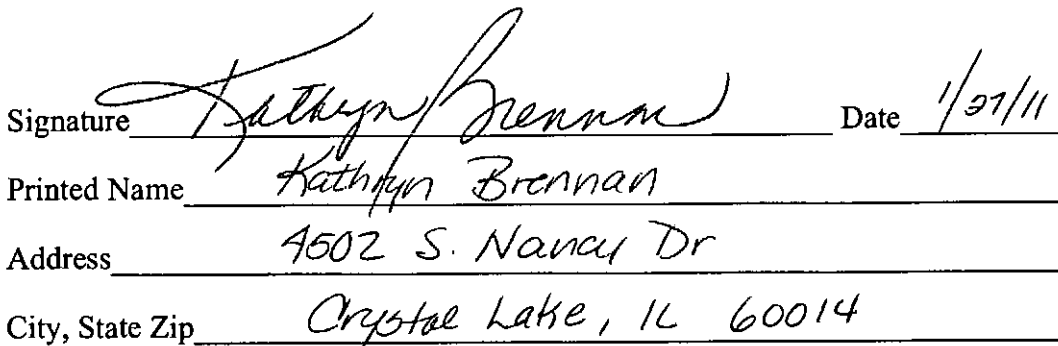 Signature Kathryn Brennan Date 1/27/11
Printed Name Kathryn Brennan
Address 4502 S. Nancy Dr
City, State Zip Crystal Lake, IL 60014